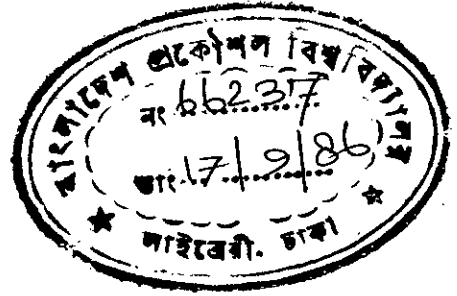 বাংলাদেশ প্রকৌশল বিশ্ববিদ্যালয়
নং 66237
তাং 17/9/86
লাইব্রেরী. ঢাকা